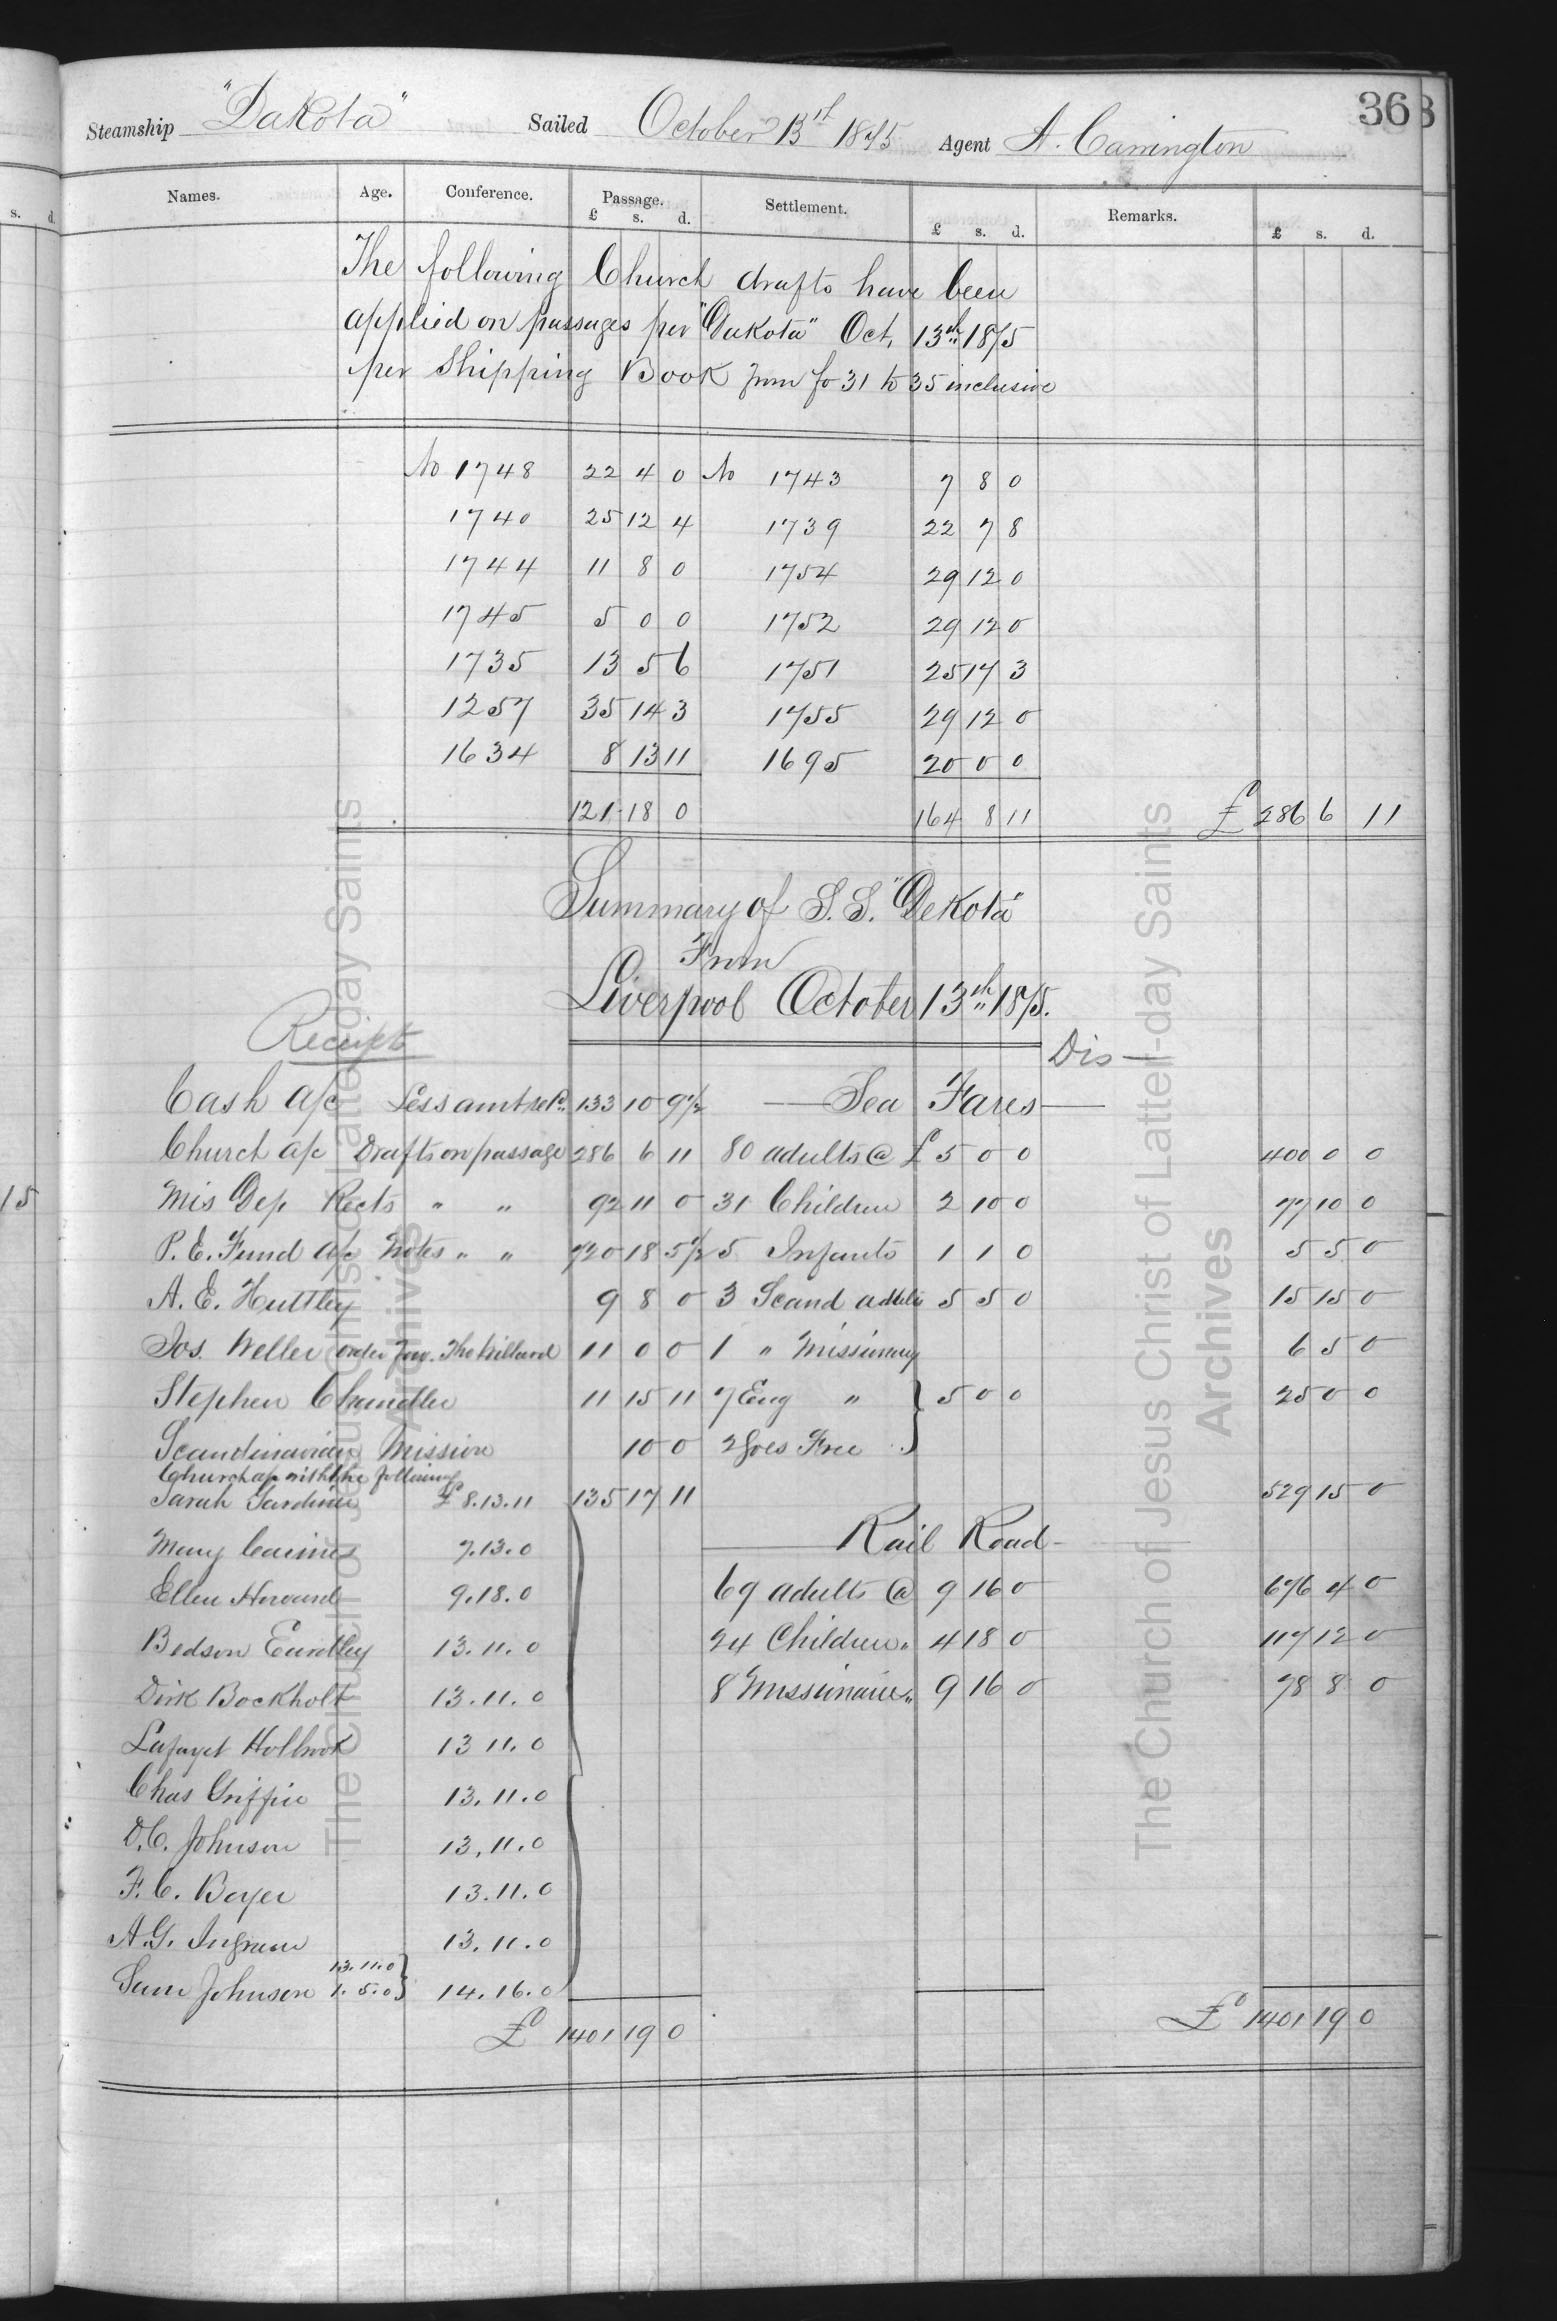 368
Steamship "Dakota" Sailed October 13th 1875 Agent A. Carrington
Names. Age. Conference. Passage. Settlement. Remarks.
£ s. d. £ s. d. £ s. d.
The following Church drafts have been
applied on passages per "Dakota" Oct, 13th 1875
per Shipping Book from fo 31 to 35 inclusive
No 1748 22 4 0 No 1743 7 8 0
1740 25 12 4 1739 22 7 8
1744 11 8 0 1754 29 12 0
1745 5 0 0 1752 29 12 0
1735 13 5 6 1751 25 17 3
1257 35 14 3 1755 29 12 0
1634 8 13 11 1695 20 0 0
121 18 0 164 8 11 £ 286 6 11
Summary of S.S. "Dekota"
From
Liverpool October 13th 1875.
Receipt Dis
Cash a/c Less amt 133 10 9½ Sea Fares
Church a/c Drafts on passage 286 6 11 80 adults @ £ 5 0 0 400 0 0
Mis Dep Rects " " 92 11 0 31 Children 2 10 0 77 10 0
P. E. Fund a/c Notes " " 720 18 5½ 5 Infants 1 1 0 5 5 0
A. E. Huttley 9 8 0 3 Scand adults 5 5 0 15 15 0
Jos. Weller order 11 0 0 1 " Missionary 6 5 0
Stephen Chandler 11 15 11 7 Eng " 5 0 0 25 0 0
Scandinavian Mission 10 0 2 goes Free
Church a/c with the following
Sarah Gardiner £ 8.13.11 135 17 11 529 15 0
Rail Road
Mary 7.13.0
Ellen Howard 9.18.0 69 adults @ 9 16 0 676 4 0
Bedson Eardley 13.11.0 24 Children " 4 18 0 117 12 0
Dirk Bockholt 13.11.0 8 Missionaries " 9 16 0 78 8 0
Lafayet Holbrook 13 11.0
Chas Griffin 13.11.0
D.C. Johnson 13.11.0
F. C. Boyer 13.11.0
A.G. Ingram 13.11.0
13.11.0
Sam Johnson 1.5.0 14.16.0
£ 1401 19 0 £ 1401 19 0
s. d.
15
The Church of Jesus Christ of Latter-day Saints
Archives
The Church of Jesus Christ of Latter-day Saints
Archives